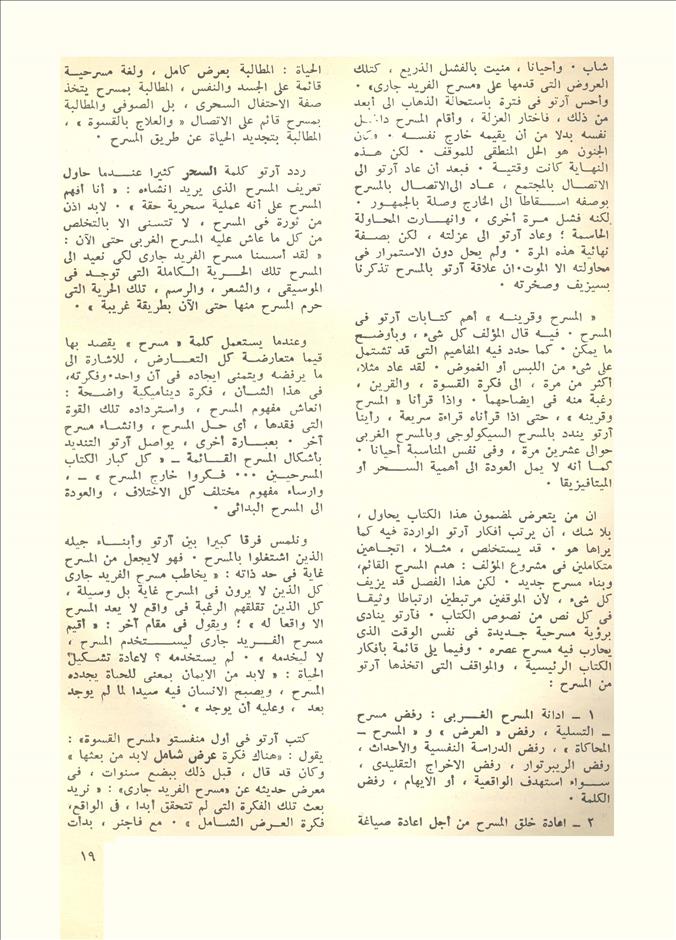 شاب ٠ وأحيانا ، منيت بالفشل الذريع ، كتلك
العروض التى قدمها على «مسرح الفريد جارى» ٠
وأحس آرتو فى فترة باستحالة الذهاب الى أبعد
من ذلك ، فاختار العزلة ، وأقام المسرح داخل
نفسه بدلا من أن يقيمه خارج نفسه ٠ وكان
الجنون هو الحل المنطقى للموقف ٠ لكن هذه
النهاية كانت وقتية ٠ فبعد أن عاد آرتو الى
الاتصال بالمجتمع ، عاد الى الاتصال بالمسرح
بوصفه اسقاطا الى الخارج وصلة بالجمهور ٠
لكنه فشل مرة أخرى ، وانهارت المحاولة
الحاسمة ؛ وعاد آرتو الى عزلته ، لكن بصفة
نهائية هذه المرة ٠ ولم يحل دون الاستمرار فى
محاولته الا الموت ٠ ان علاقة آرتو بالمسرح تذكرنا
بسيزيف وصخرته ٠
« المسرح وقرينه » أهم كتابات آرتو فى
المسرح ٠ فيه قال المؤلف كل شىء ، وبأوضح
ما يمكن ٠ كما حدد فيه المفاهيم التى قد تشتمل
على شىء من اللبس أو الغموض ٠ لقد عاد مثلا،
أكثر من مرة ، الى فكرة القسوة ، والقرين ،
رغبة منه فى ايضاحهما ٠ واذا قرأنا « المسرح
وقرينه » ، حتى اذا قرأناه قراءة سريعة ، رأينا
آرتو يندد بالمسرح السيكولوجى وبالمسرح الغربى
حوالى عشرين مرة ، وفى نفس المناسبة أحيانا ٠
كما أنه لا يمل العودة الى أهمية السحر أو
الميتافيزيقا ٠
ان من يتعرض لمضمون هذا الكتاب يحاول ،
بلا شك ، أن يرتب أفكار آرتو الواردة فيه كما
يراها هو ٠ قد يستخلص ، مثلا ، اتجاهين
متكاملين فى مشروع المؤلف : هدم المسرح القائم،
وبناء مسرح جديد ٠ لكن هذا الفصل قد يزيف
كل شىء ، لأن الموقفين مرتبطين ارتباطا وثيقا
فى كل نص من نصوص الكتاب ٠ فآرتو ينادى
برؤية مسرحية جديدة فى نفس الوقت الذى
يحارب فيه مسرح عصره ٠ وفيما يلى قائمة بأفكار
الكتاب الرئيسية ، والمواقف التى اتخذها آرتو
من المسرح :
١ ـ ادانة المسرح الغربى : رفض مسرح
ـ التسلية ، رفض « العرض » و « المسرح ـ
المحاكاة » ، رفض الدراسة النفسية والأحداث ،
رفض الريبرتوار ، رفض الاخراج التقليدى ،
سواء استهدف الواقعية ، أو الايهام ، رفض
الكلمة ٠
٢ ـ اعادة خلق المسرح من أجل اعادة صياغة
الحياة : المطالبة بعرض كامل ، ولغة مسرحية
قائمة على الجسد والنفس ، المطالبة بمسرح يتخذ
صفة الاحتفال السحرى ، بل الصوفى والمطالبة
بمسرح قائم على الاتصال « والعلاج بالقسوة » ،
المطالبة بتجديد الحياة عن طريق المسرح ٠
ردد آرتو كلمة السحر كثيرا عندما حاول
تعريف المسرح الذى يريد انشاءه : « أنا أفهم
المسرح على أنه عملية سحرية حقة » ٠ لابد اذن
من ثورة فى المسرح ، لا تتسنى الا بالتخلص
من كل ما عاش عليه المسرح الغربى حتى الآن :
« لقد أسسنا مسرح الفريد جارى لكى نعيد الى
المسرح تلك الحرية الكاملة التى توجد فى
الموسيقى ، والشعر ، والرسم ، تلك الحرية التى
حرم المسرح منها حتى الآن بطريقة غريبة » ٠
وعندما يستعمل كلمة « مسرح » يقصد بها
قيما متعارضة كل التعارض ، للاشارة الى
ما يرفضه ويتمنى ايجاده فى آن واحد ٠ وفكرته،
فى هذا الشأن ، فكرة ديناميكية واضحة :
انعاش مفهوم المسرح ، واسترداده تلك القوة
التى فقدها ، أى حل المسرح ، وانشاء مسرح
آخر ٠ بعبارة أخرى ، يواصل آرتو التنديد
بأشكال المسرح القائمة ـ « كل كبار الكتاب
المسرحيين ٠٠٠ فكروا خارج المسرح » ـ ،
وارساء مفهوم مختلف كل الاختلاف ، والعودة
الى المسرح البدائى ٠
ونلمس فرقا كبيرا بين آرتو وأبناء جيله
الذين اشتغلوا بالمسرح ٠ فهو لايجعل من المسرح
غاية فى حد ذاته : « يخاطب مسرح الفريد جارى
كل الذين لا يرون فى المسرح غاية بل وسيلة ،
كل الذين تقلقهم الرغبة فى واقع لا يعد المسرح
الا واقعا له » ؛ ويقول فى مقام آخر : « أقيم
مسرح الفريد جارى ليستخدم المسرح ،
لا ليخدمه » ٠ لم يستخدمه ؟ لاعادة تشكيل
الحياة : « لابد من الايمان بمعنى للحياة يجدده
المسرح ، ويصبح الانسان فيه سيدا لما لم يوجد
بعد ، وعليه أن يوجد » ٠
كتب آرتو فى أول منفستو «لمسرح القسوة» :
يقول : «هناك فكرة عرض شامل لابد من بعثها »
وكان قد قال ، قبل ذلك ببضع سنوات ، فى
معرض حديثه عن «مسرح الفريد جارى» : « نريد
بعث تلك الفكرة التى لم تتحقق أبدا ، فى الواقع،
فكرة العرض الشامل » ٠ مع فاجنر ، بدأت
١٩